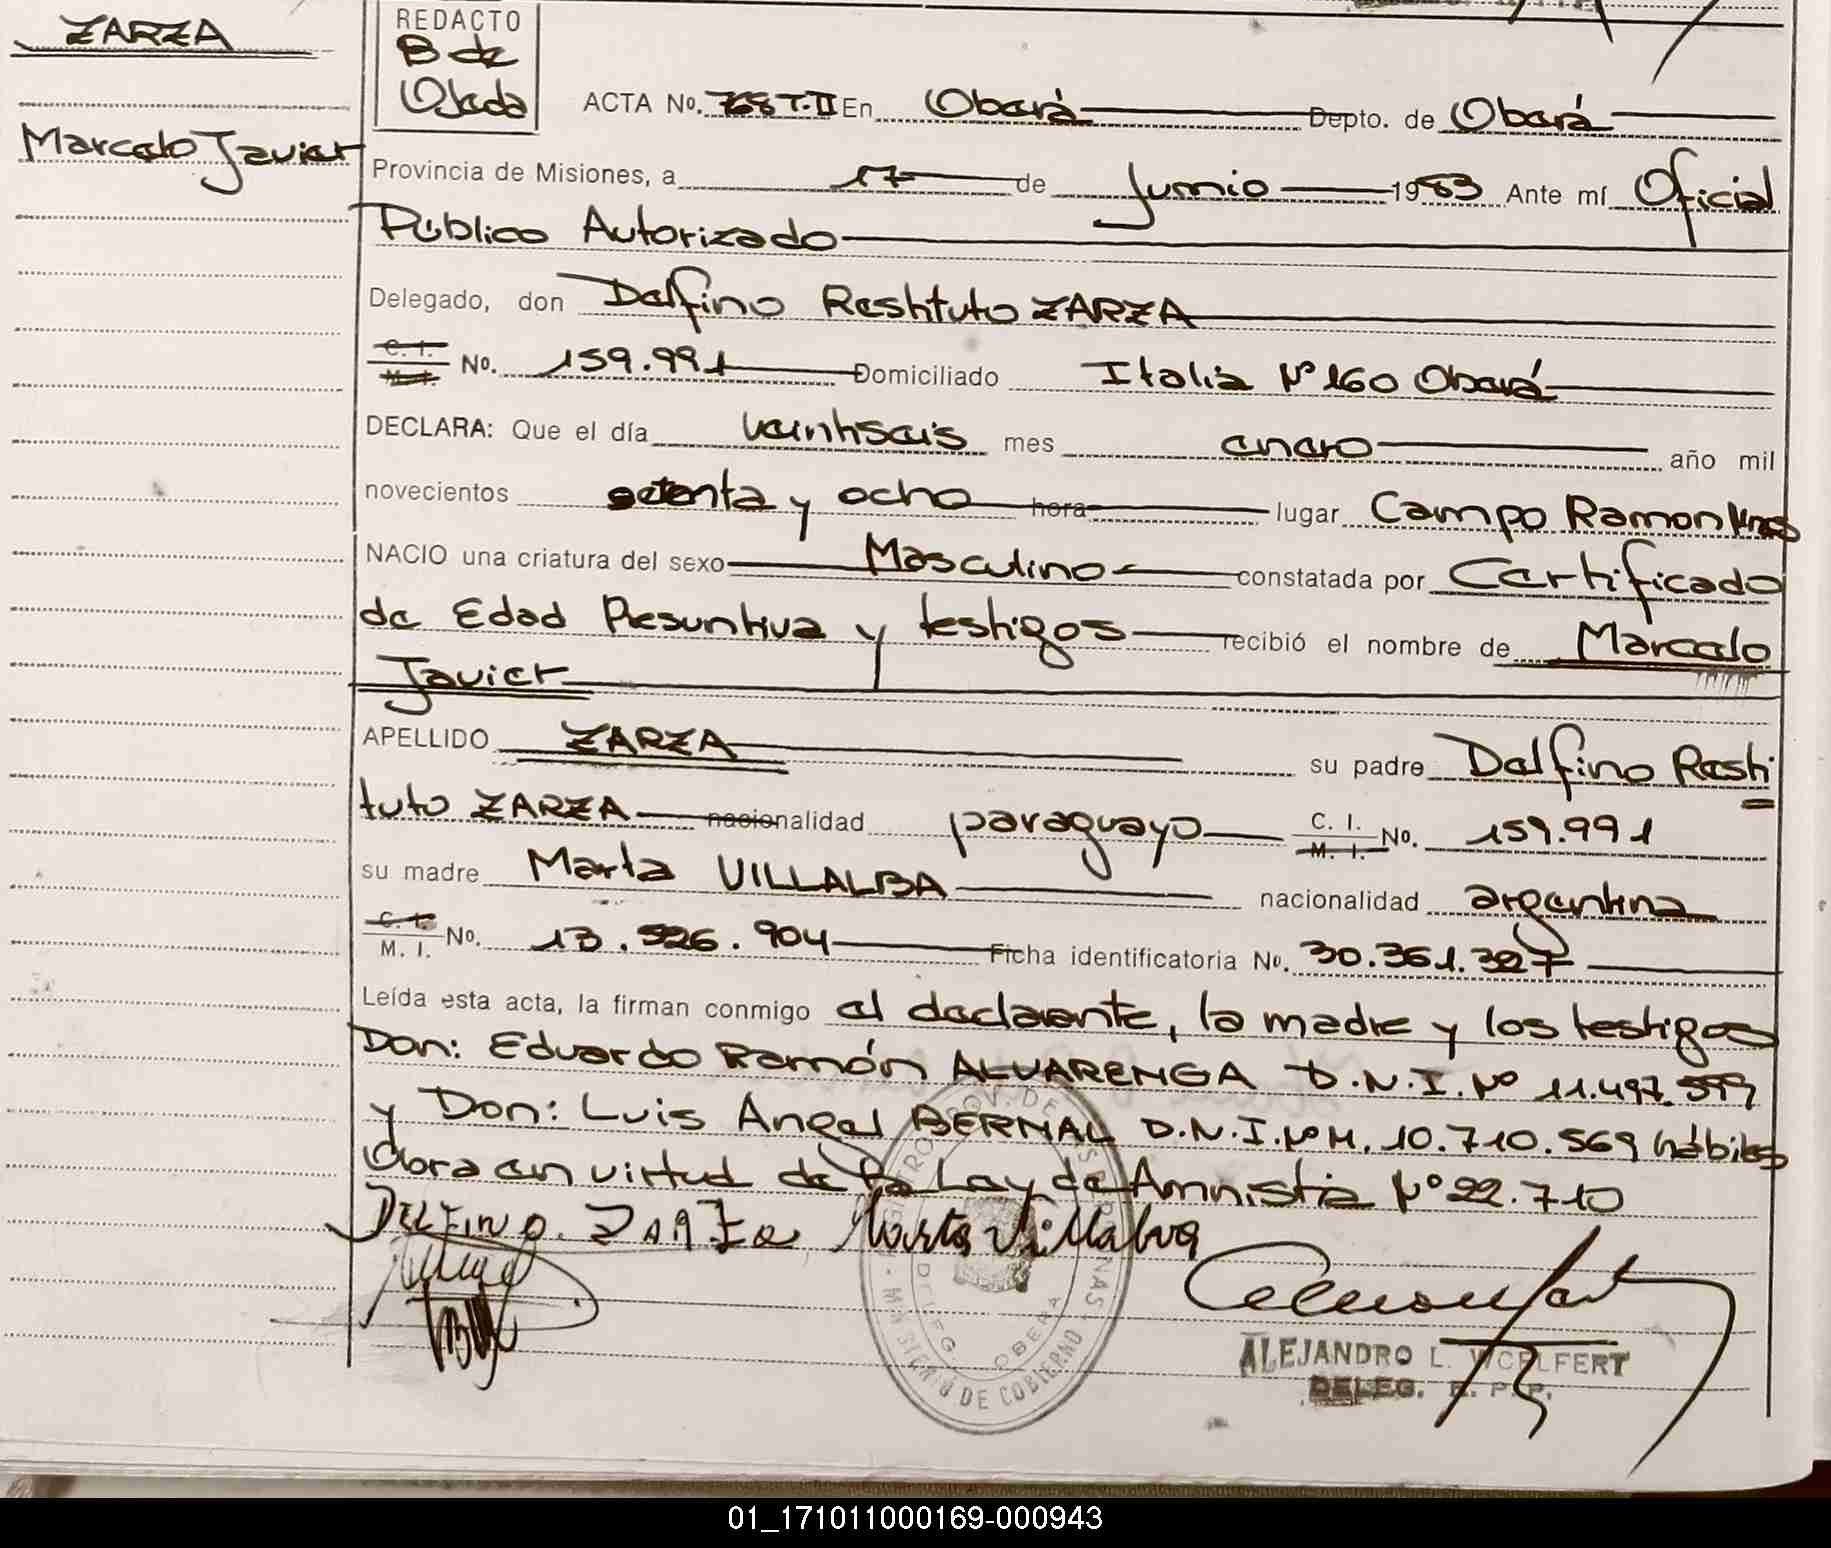 ZARZA
Marcelo Javier
REDACTO
B de
Ojeda
ACTA No. 768 T.II En Oberá Depto. de Oberá
Provincia de Misiones, a 17 de Junio 1983 Ante mí Oficial
Público Autorizado
Delegado, don Delfino Restituto ZARZA
C. I.
M. I. No. 159.991 Domiciliado Italia Nº 160 Oberá
DECLARA: Que el día veintiseis mes enero año mil
novecientos setenta y ocho hora lugar Campo Ramon Mnes
NACIO una criatura del sexo Masculino constatada por Certificado
de Edad Presuntiva y testigos recibió el nombre de Marcelo
Javier
APELLIDO ZARZA su padre Delfino Resti
tuto ZARZA nacionalidad paraguayo C. I. M. I. No. 159.991
su madre Marta VILLALBA nacionalidad argentina
C. I.
M. I. No. 13.526.904 Ficha identificatoria No. 30.361.327
Leída esta acta, la firman conmigo el declarante, la madre y los testigos
Don: Eduardo Ramón ALVARENGA D.N.I. Nº 11.497.599
y Don: Luis Angel BERNAL D.N.I. Nº M. 10.710.569 hábiles
Obra en virtud de la Ley de Amnistia Nº 22.710
DELFINO. ZARZA Marta Villalva
OBERA
MINISTERIO DE GOBIERNO
ALEJANDRO L. WOELFERT
DELEG. R. P. P.
01_171011000169-000943